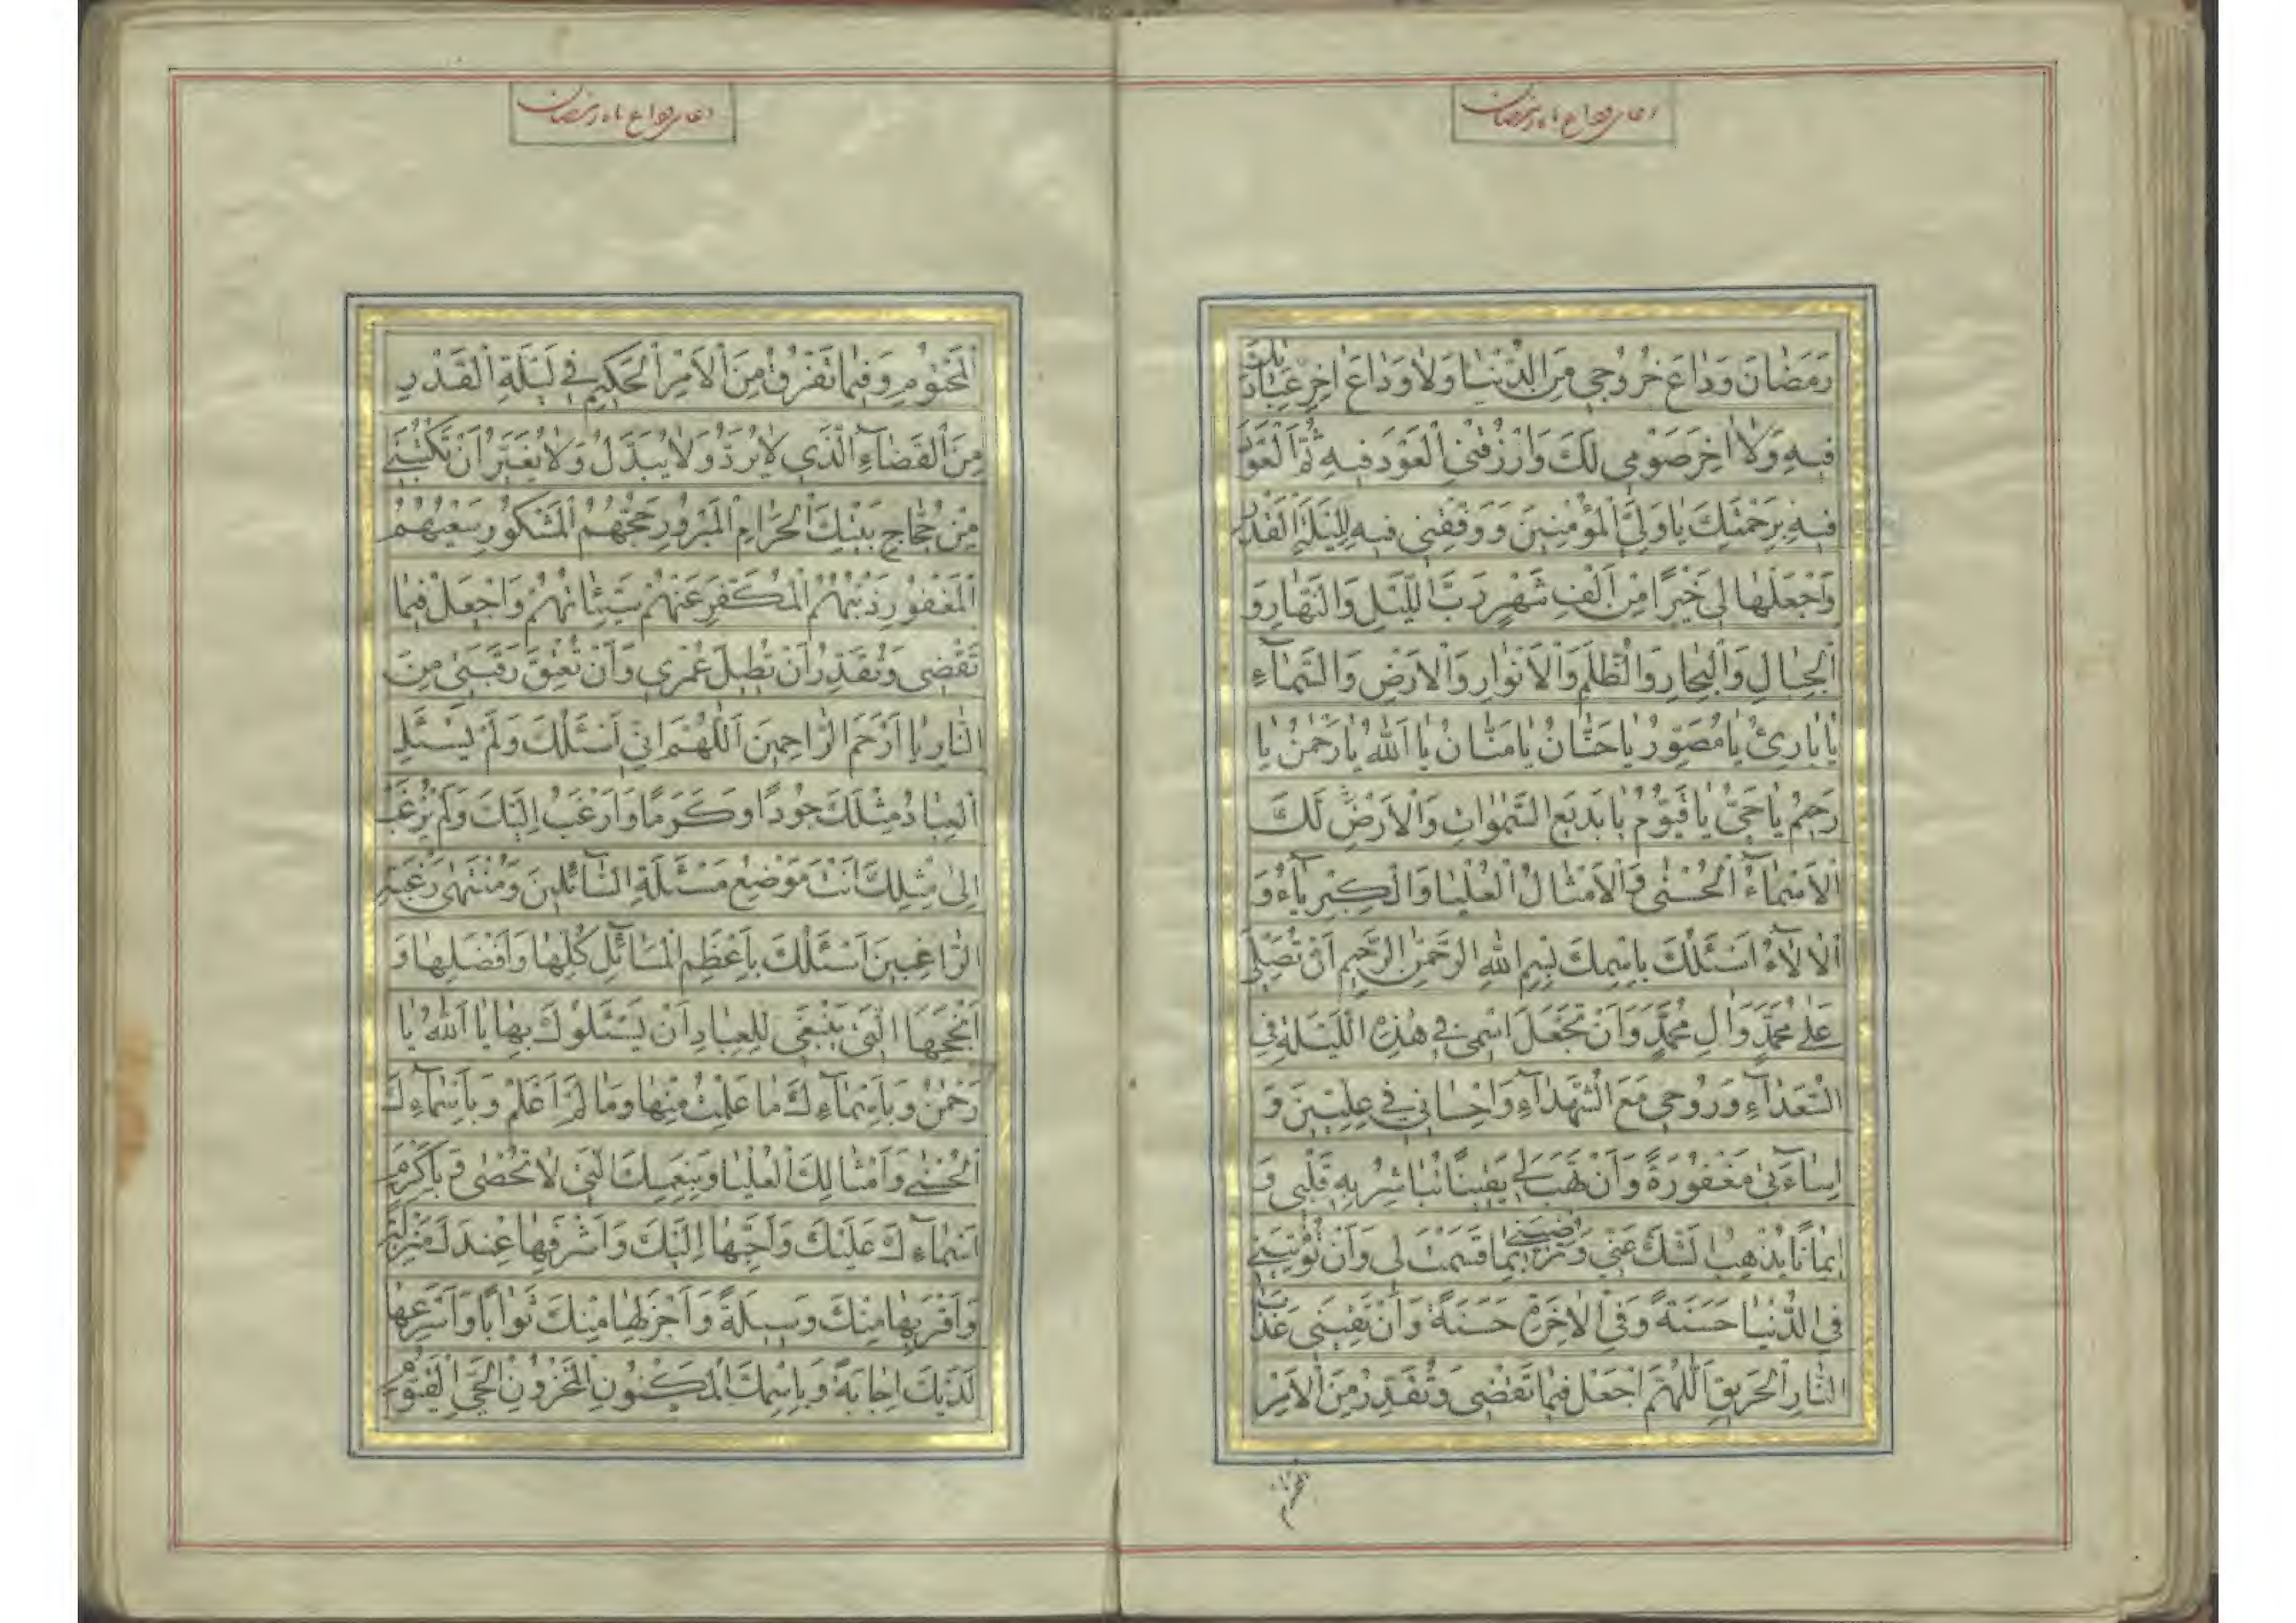 دعای وداع ماه رمضان
رَمَضانَ وَداعَ خُرُوجی مِنَ الدُّنْیا وَلا وَداعَ اخِرِ عِبادَتِكَ
فیهِ وَلا اخِرَ صَوْمی لَكَ وَارْزُقْنِی الْعَوْدَ فیهِ ثُمَّ الْعَوْدَ
فیهِ بِرَحْمَتِكَ یا وَلِیَّ الْمُؤْمِنینَ وَوَفِّقْنی فیهِ لِلَیْلَةِ الْقَدْرِ
وَاجْعَلْها لی خَیْرًا مِنْ اَلْفِ شَهْرٍ رَبَّ اللَّیْلِ وَالنَّهارِ وَ
الْجِبالِ وَالْبِحارِ وَالظُّلَمِ وَالْاَنْوارِ وَالْاَرْضِ وَالسَّمآءِ
یا بارِئُ یا مُصَوِّرُ یا حَنّانُ یا مَنّانُ یا اَللهُ یا رَحْمٰنُ یا
رَحیمُ یا حَیُّ یا قَیُّومُ یا بَدیعَ السَّمٰواتِ وَالْاَرْضِ لَكَ
الْاَسْمآءُ الْحُسْنٰی وَالْاَمْثالُ الْعُلْیا وَالْكِبْرِیآءُ وَ
الْالآءُ اَسْئَلُكَ بِاسْمِكَ بِسْمِ اللهِ الرَّحْمٰنِ الرَّحیمِ اَنْ تُصَلِّیَ
عَلٰی مُحَمَّدٍ وَالِ مُحَمَّدٍ وَاَنْ تَجْعَلَ اسْمی فی هٰذِهِ اللَّیْلَةِ فِی
السُّعَدآءِ وَرُوحی مَعَ الشُّهَدآءِ وَاِحْسانی فی عِلِّیّینَ وَ
اِسآءَتی مَغْفُورَةً وَاَنْ تَهَبَ لی یَقینًا تُباشِرُ بِهِ قَلْبی وَ
ایمانًا یُذْهِبُ الشَّكَّ عَنّی وَتُرْضِیَنی بِما قَسَمْتَ لی وَاَنْ تُؤْتِیَنی
فِی الدُّنْیا حَسَنَةً وَفِی الْاخِرَةِ حَسَنَةً وَاَنْ تَقِیَنی عَذابَ
النّارِ الْحَریقِ اَللّهُمَّ اجْعَلْ فیما تَقْضی وَتُقَدِّرُ مِنَ الْاَمْرِ
دعای وداع ماه رمضان
الْمَحْتُومِ وَفیما تَفْرُقُ مِنَ الْاَمْرِ الْحَكیمِ فی لَیْلَةِ الْقَدْرِ
مِنَ الْقَضآءِ الَّذی لا یُرَدُّ وَلا یُبَدَّلُ وَلا یُغَیَّرُ اَنْ تَكْتُبَنی
مِنْ حُجّاجِ بَیْتِكَ الْحَرامِ الْمَبْرُورِ حَجُّهُمُ الْمَشْكُورِ سَعْیُهُمُ
الْمَغْفُورِ ذَنْبُهُمُ الْمُكَفَّرِ عَنْهُمْ سَیِّئاتُهُمْ وَاجْعَلْ فیما
تَقْضی وَتُقَدِّرُ اَنْ تُطیلَ عُمْری وَاَنْ تُعْتِقَ رَقَبَتی مِنَ
النّارِ یا اَرْحَمَ الرّاحِمینَ اَللّهُمَّ اِنّی اَسْئَلُكَ وَلَمْ یَسْئَلِ
الْعِبادُ مِثْلَكَ جُودًا وَكَرَمًا وَاَرْغَبُ اِلَیْكَ وَلَمْ یُرْغَبْ
اِلٰی مِثْلِكَ اَنْتَ مَوْضِعُ مَسْئَلَةِ السّآئِلینَ وَمُنْتَهٰی رَغْبَةِ
الرّاغِبینَ اَسْئَلُكَ بِاَعْظَمِ الْمَسآئِلِ كُلِّها وَاَفْضَلِها وَ
اَنْجَحِهَا الَّتی یَنْبَغی لِلْعِبادِ اَنْ یَسْئَلُوكَ بِها یا اَللهُ یا
رَحْمٰنُ وَبِاَسْمآءِكَ ما عَلِمْتُ مِنْها وَما لَمْ اَعْلَمْ وَبِاَسْمآءِكَ
الْحُسْنٰی وَاَمْثالِكَ الْعُلْیا وَبِنِعَمِكَ الَّتی لا تُحْصٰی وَبِاَكْرَمِ
اَسْمآءِكَ عَلَیْكَ وَاَحَبِّها اِلَیْكَ وَاَشْرَفِها عِنْدَكَ مَنْزِلَةً
وَاَقْرَبِها مِنْكَ وَسیلَةً وَاَجْزَلِها مِنْكَ ثَوابًا وَاَسْرَعِها
لَدَیْكَ اِجابَةً وَبِاسْمِكَ الْمَكْنُونِ الْمَخْزُونِ الْحَیِّ الْقَیُّومِ